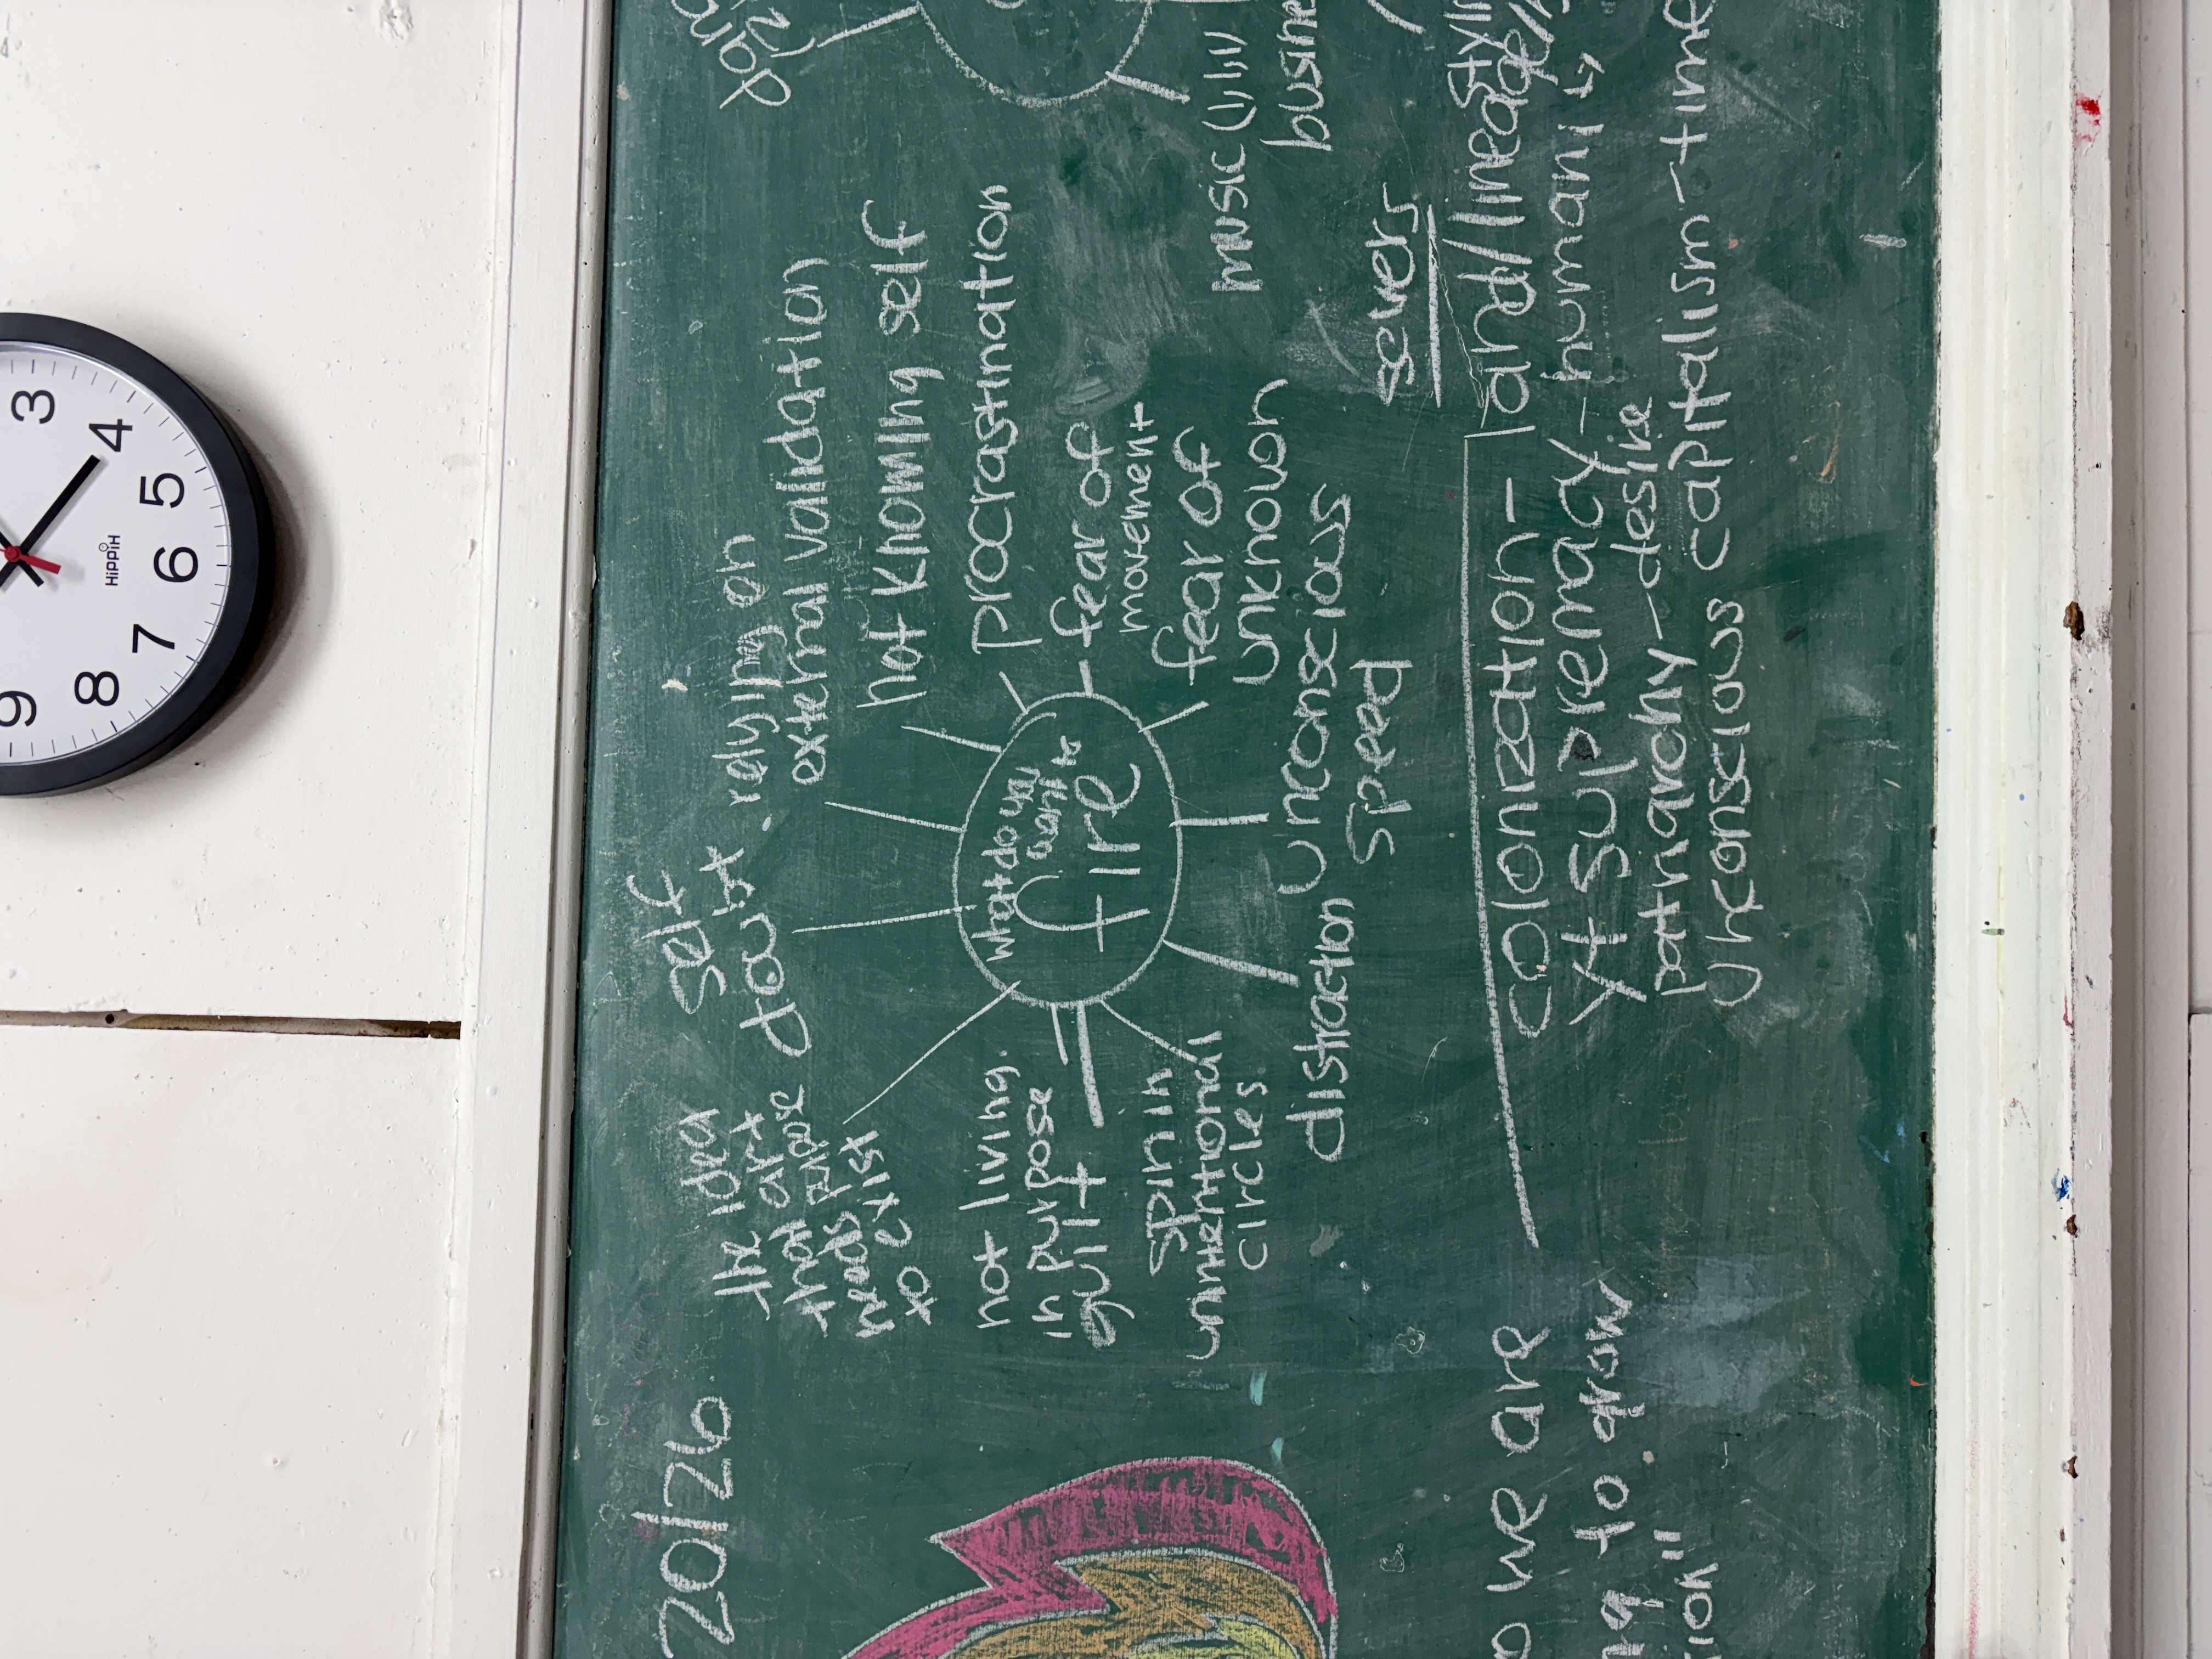 3
4
5
6
7
8
9
HIPPIH
20/26
the idea
that art
needs
to exist
self
doubt
relying on
external validation
not knowing self
procrastination
fear of
movement
fear of
unknown
unconscious
speed
distraction
spin in
unintentional
circles
guilt
not living
in purpose
what do you
want to
fire
music
severs
colonization - land/lineage/
yt supremacy - humanity
patriarchy - desire
unconscious capitalism - time
we are
to grow